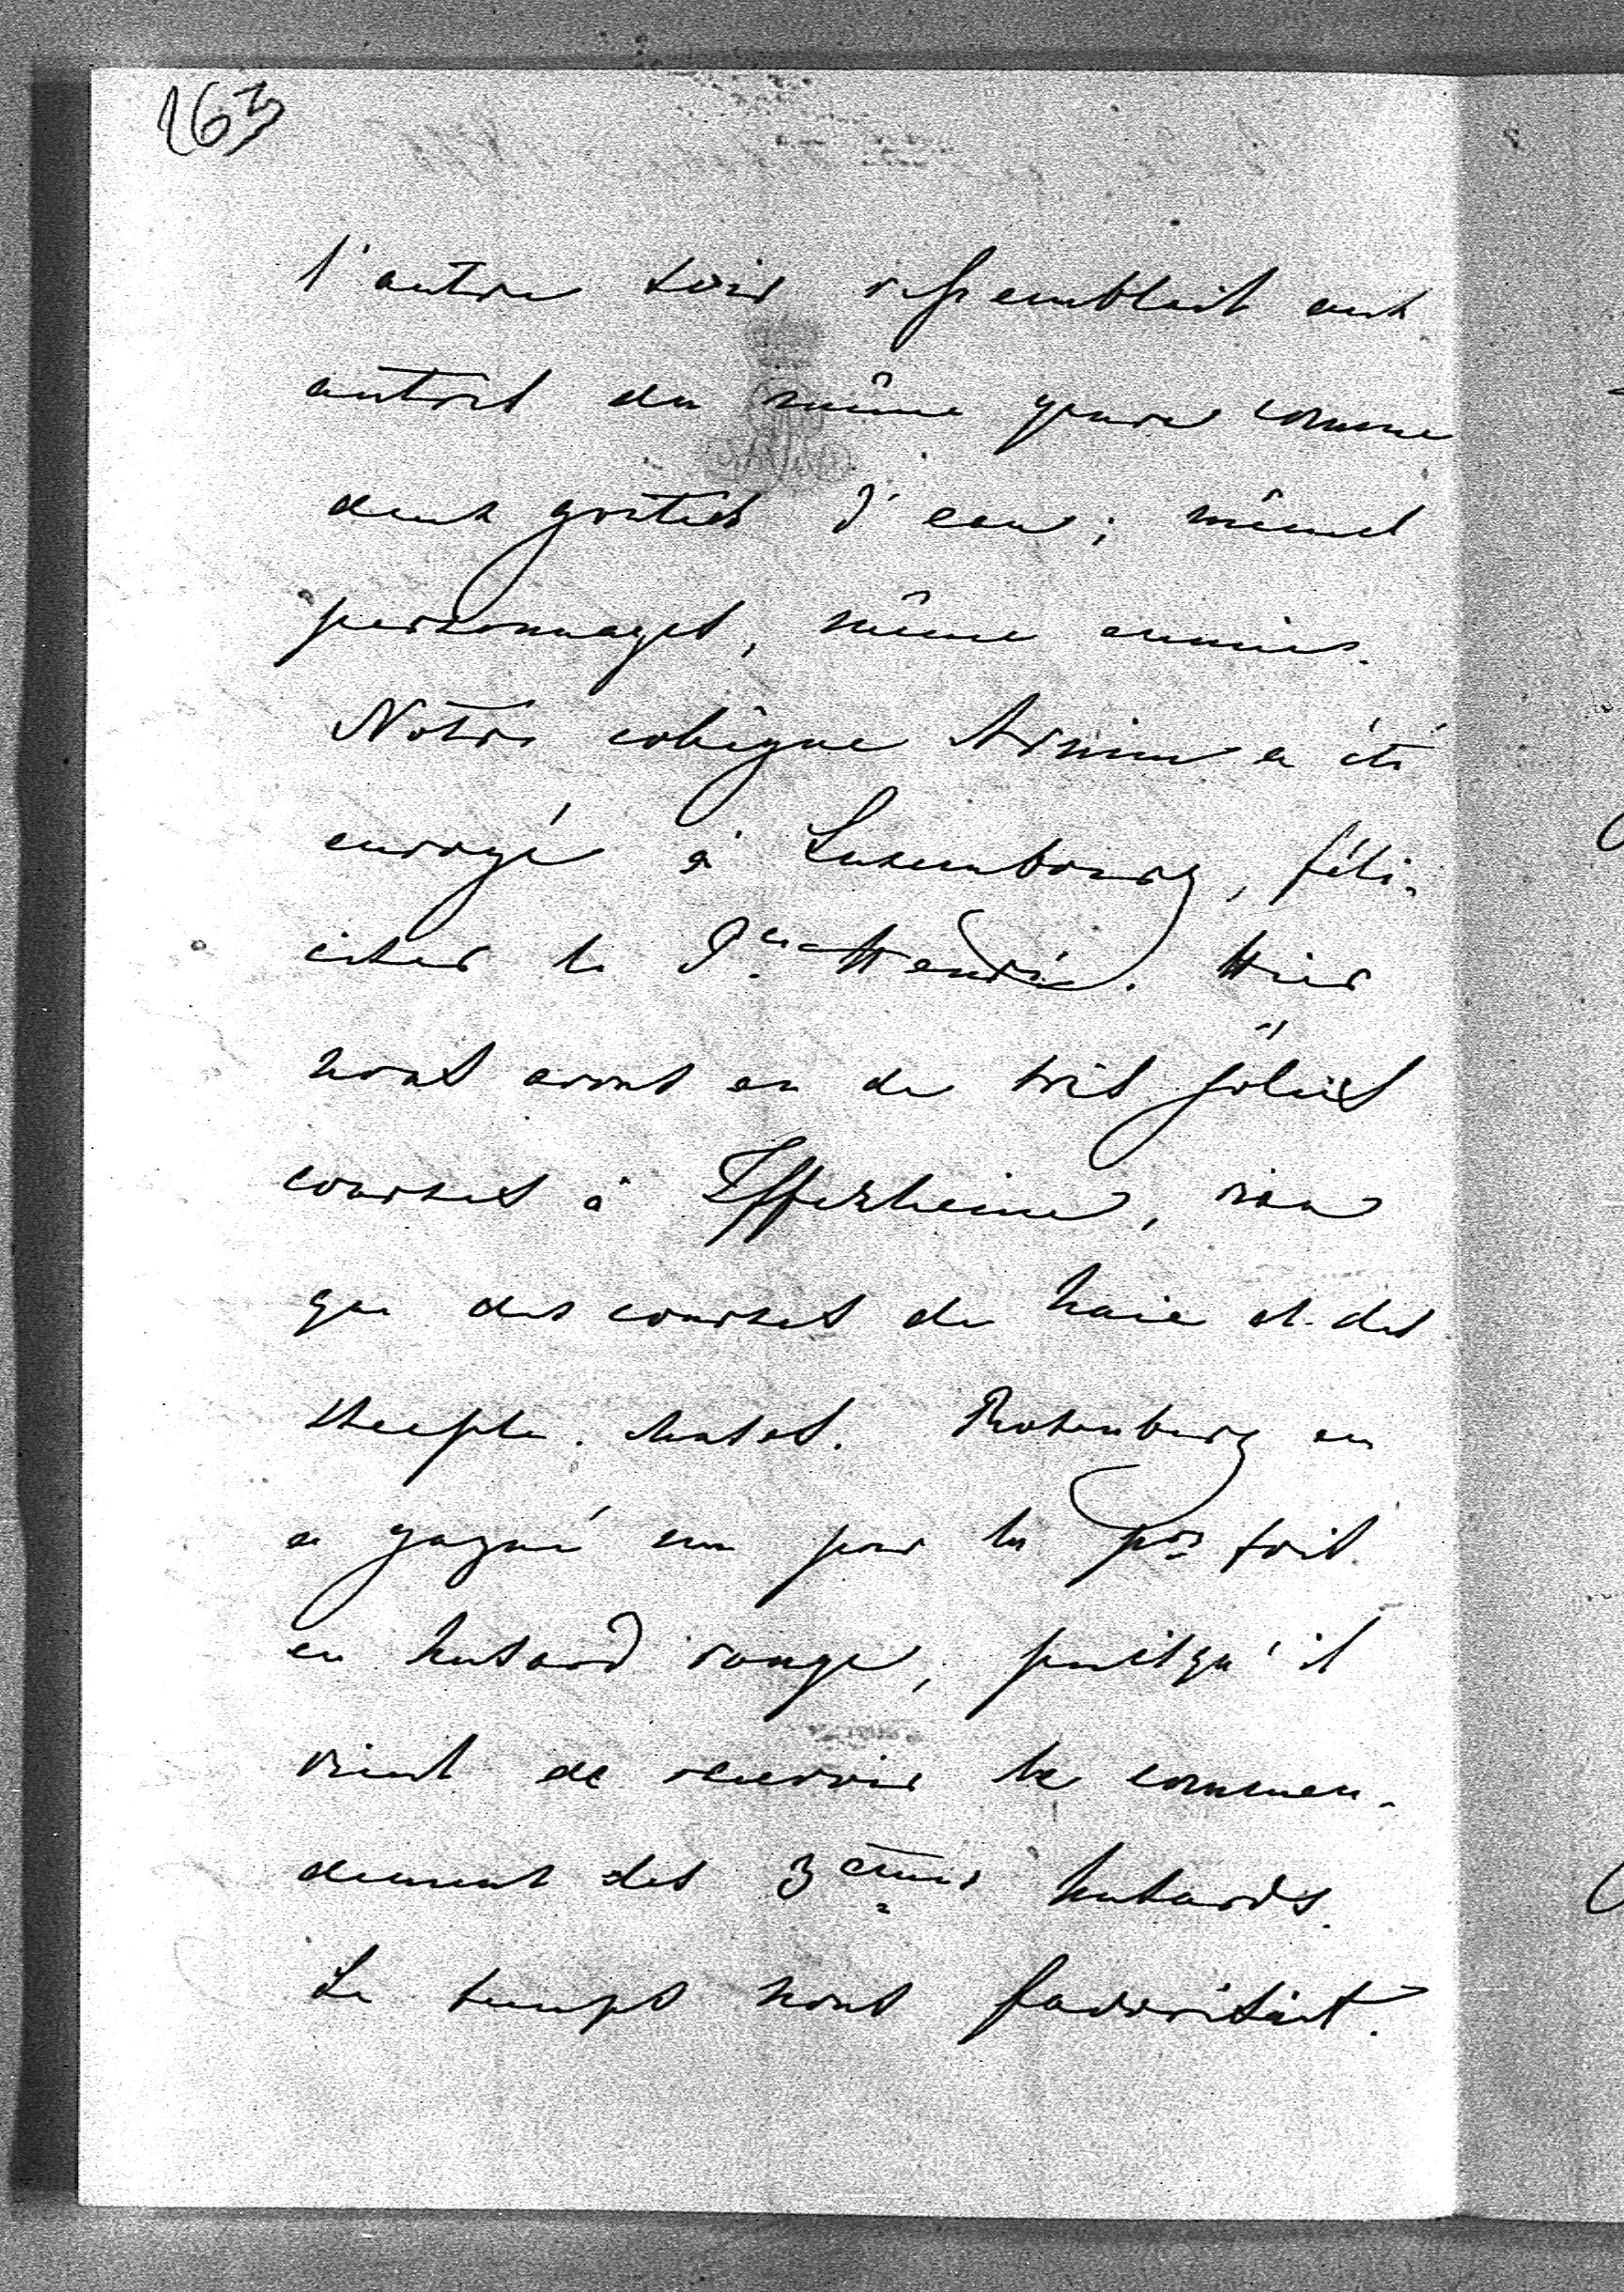 163
l'autre soir ressemblait aux
autres du même genre comme
deux gouttes d'eau; mêmes
personnages, même ennui.
Notre collègue Arnim a été
envoyé à Luxembourg, féli-
citer le Pce Henri. Hier
nous avons eu de très jolies
courses à Iffezheim, rien
que des courses de haie et des
steeple-chases. Rosenberg en
a gagné une pour la pre fois
en husard rouge, puisqu'il
vient de recevoir le comman-
dement des 3èmes husards.
Le temps nous favorisait.